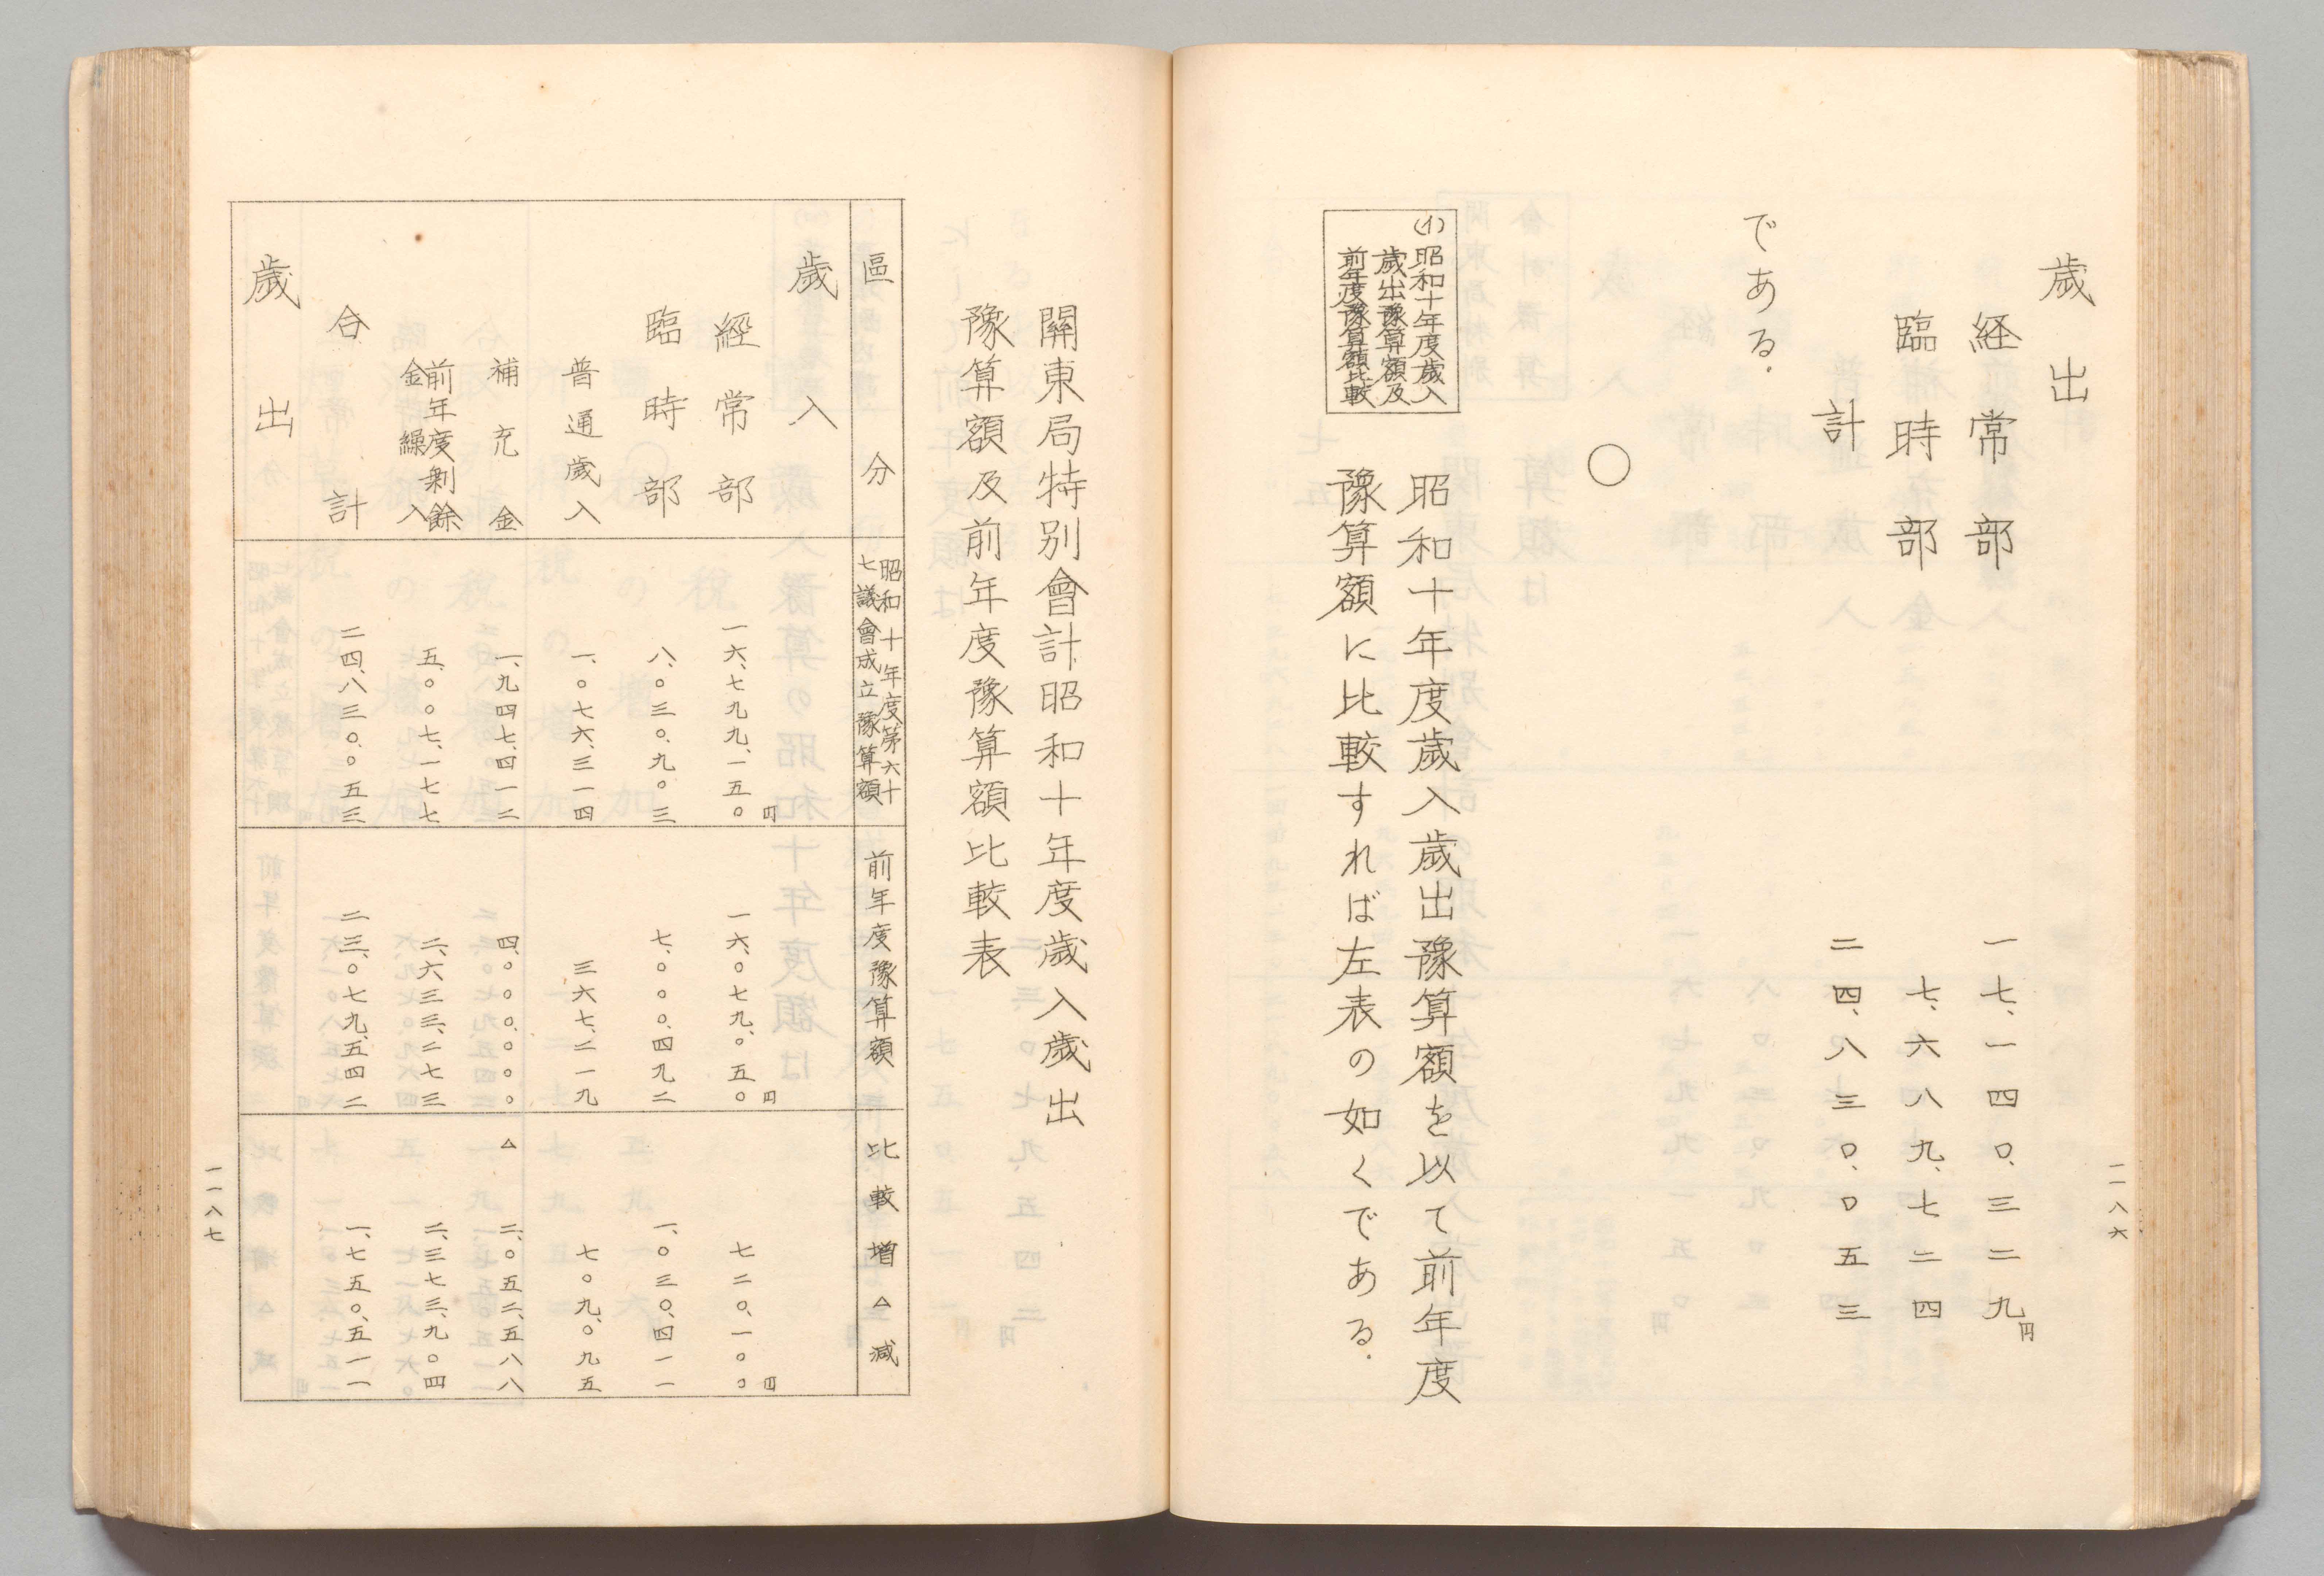 歳出
経常部　一七、一四〇、三二九円
臨時部　七、六八九、七二四
計　二四、八三〇、〇五三
である.
〇
(イ)昭和十年度歳入
歳出豫算額及
前年度豫算額比較
昭和十年度歳入歳出豫算額を以て前年度
豫算額に比較すれば左表の如くである.
一一八六
關東局特別會計昭和十年度歳入歳出
豫算額及前年度豫算額比較表
區分　昭和十年度第六十七議會成立豫算額　前年度豫算額　比較増△減
歳入
經常部　一六、七九九、一五〇円　一六、〇七九、〇五〇円　七二〇、一〇〇円
臨時部　八、〇三〇、九〇三　七、〇〇〇、四九二　一、〇三〇、四一一
普通歳入　一、〇七六、三一四　三六七、二一九　七〇九、〇九五
補充金　一、九四七、四一二　四、〇〇〇、〇〇〇　△二、〇五二、五八八
前年度剰餘金繰入　五、〇〇七、一七七　二、六三三、二七三　二、三七三、九〇四
合計　二四、八三〇、〇五三　二三、〇七九、五四二　一、七五〇、五一一
歳出
一一八七